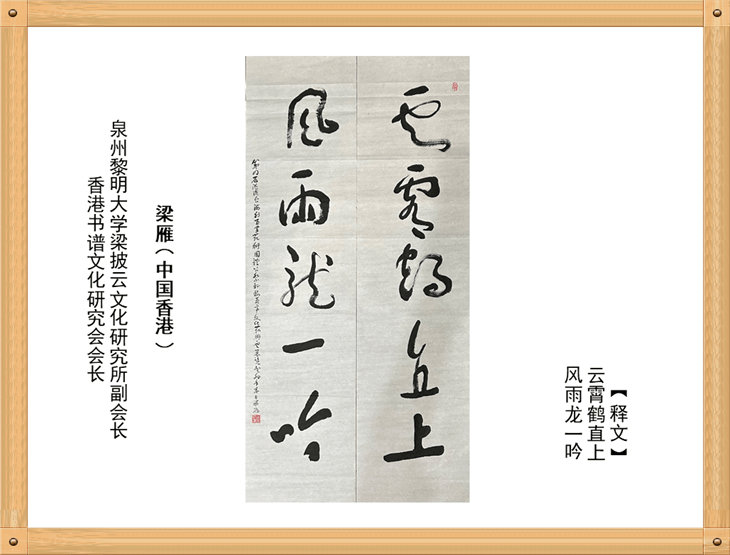 【释文】
云霄鹤直上
风雨龙一吟
云霄鹤直上
风雨龙一吟
梁雁（中国香港）
泉州黎明大学梁披云文化研究所副会长
香港书谱文化研究会会长